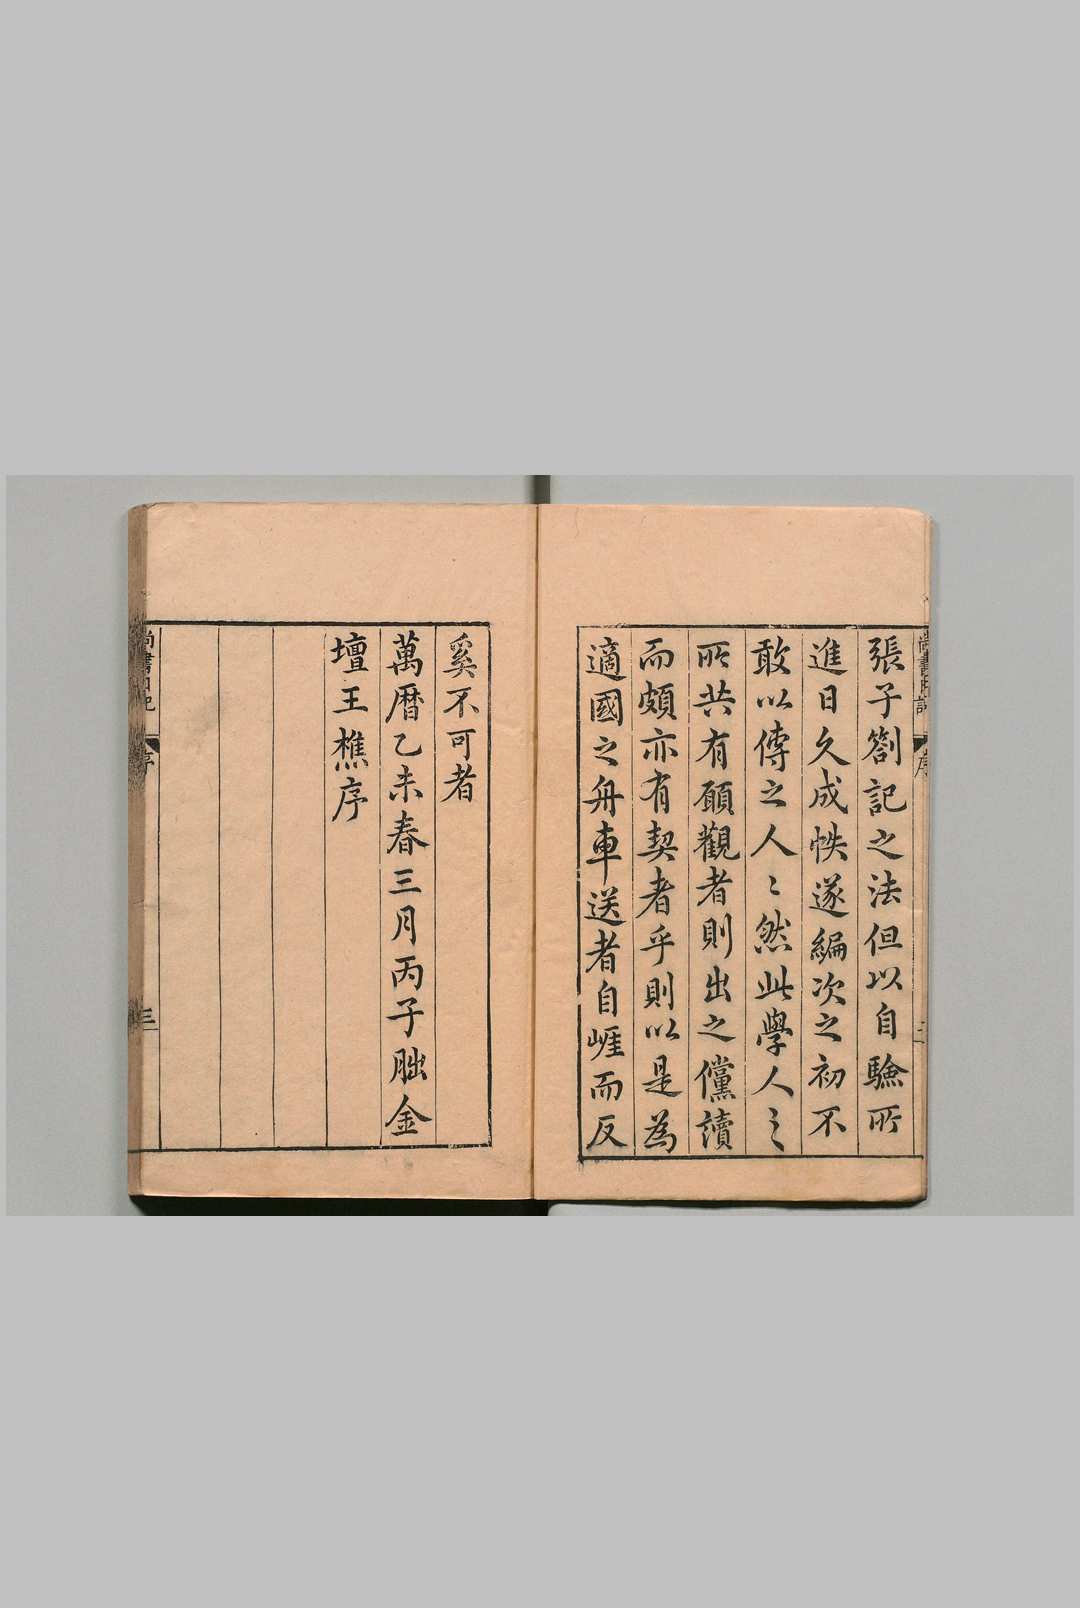 張子劄記之法但以自驗所
進日久成帙遂編次之初不
敢以傳之人〻然此學人之
所共有願觀者則出之儻讀
而頗亦有契者乎則以是為
適國之舟車送者自崕而反
奚不可者
萬曆乙未春三月丙子朏金
壇王樵序
尚書日記
序
三